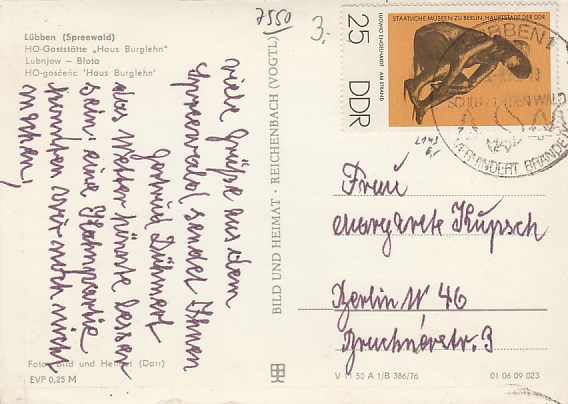 7550
3.-
Lübben (Spreewald)
HO-Gaststätte „Haus Burglehn"
Lubnjow — Błota
HO-gosćeńc 'Haus Burglehn'
Viele Grüße aus dem
Spreewald sendet Ihnen
Gertrud Dühmert
das Wetter könnte besser
sein. eine Kahnpartie
konnten wir noch nicht
machen,
Foto: Bild und Heimat (Darr)
EVP 0,25 M
BILD UND HEIMAT · REICHENBACH (VOGTL)
STAATLICHE MUSEEN ZU BERLIN, HAUPTSTADT DER DDR
LUDWIG ENGELHARDT AM STRAND
25 DDR
LÜBBEN 1
VERHINDERT BRÄNDE
Frau
Margarete Kupsch
Berlin N 46
Bruchnerstr. 3
V 11 50 A 1/B 386/76
01 06 09 023